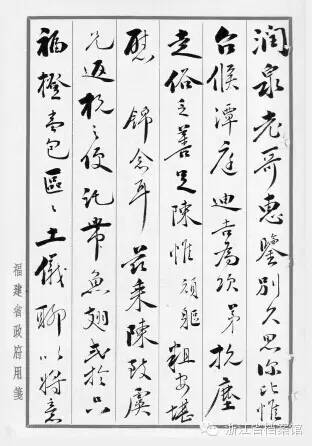 润泉老哥惠鉴别久思深比惟
台候潭庭迪吉為頌弟抗塵
走俗乏善足陳惟頑軀粗安堪
慰錦念耳兹乘陳
兄返杭之便託帶魚翅弍拾只
福橙壹包區〻土儀聊以將意
福建省政府用箋
浙江省档案馆